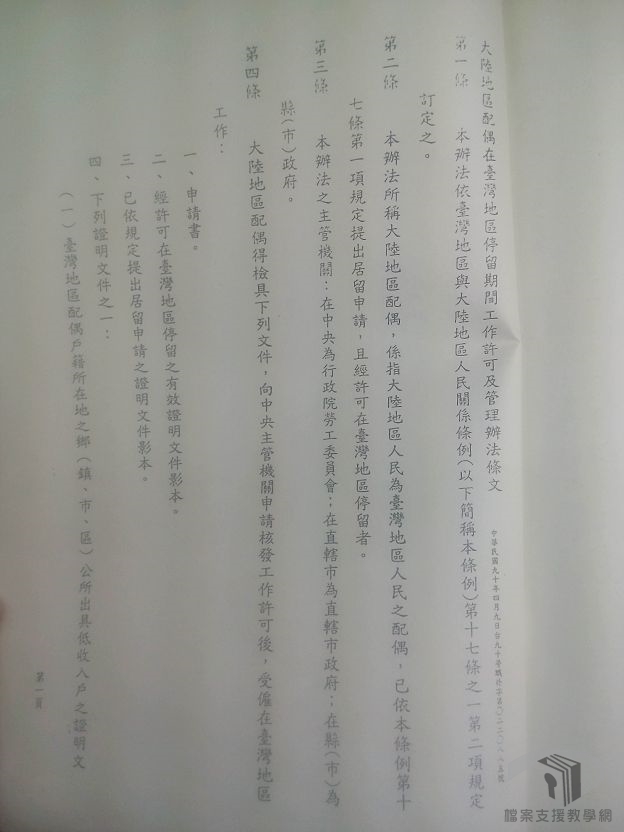 大陸地區配偶在臺灣地區停留期間工作許可及管理辦法條文
第一條　本辦法依臺灣地區與大陸地區人民關係條例(以下簡稱本條例)第十七條之一第二項規定
訂定之。
第二條　本辦法所稱大陸地區配偶，係指大陸地區人民為臺灣地區人民之配偶，已依本條例第十
七條第一項規定提出居留申請，且經許可在臺灣地區停留者。
第三條　本辦法之主管機關：在中央為行政院勞工委員會；在直轄市為直轄市政府；在縣(市)為
縣(市)政府。
第四條　大陸地區配偶得檢具下列文件，向中央主管機關申請核發工作許可後，受僱在臺灣地區
工作：
一、申請書。
二、經許可在臺灣地區停留之有效證明文件影本。
三、已依規定提出居留申請之證明文件影本。
四、下列證明文件之一：
(一)臺灣地區配偶戶籍所在地之鄉(鎮、市、區)公所出具低收入戶之證明文
第一頁
檔案支援教學網